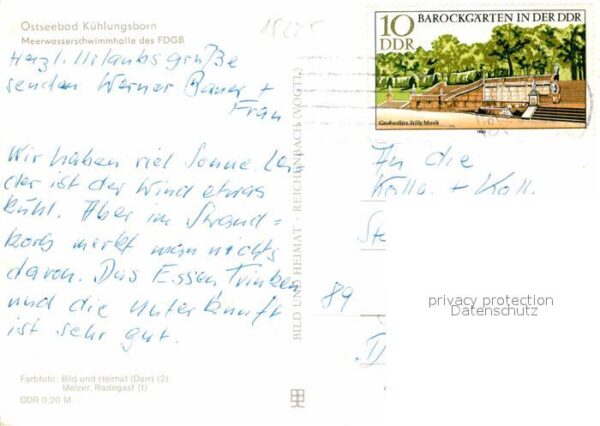 Ostseebad Kühlungsborn
Meerwasserschwimmhalle des FDGB
15225
Herzl. Urlaubsgrüße
senden Werner Bauer +
Frau
Wir haben viel Sonne. Lei
der ist der Wind etwas
kühl. Aber im Strand=
korb merkt man nichts
davon. Das Essen Trinken
und die Unterkunft
ist sehr gut.
Farbfoto: Bild und Heimat (Darr) (2)
Melzer, Radegast (1)
DDR 0,20 M
BILD UND HEIMAT · REICHENBACH (VOGTL)
10 BAROCKGÄRTEN IN DER DDR
DDR
Großsedlitz, Stille Musik
1980
An die
Kolln. + Koll.
89
privacy protection
Datenschutz